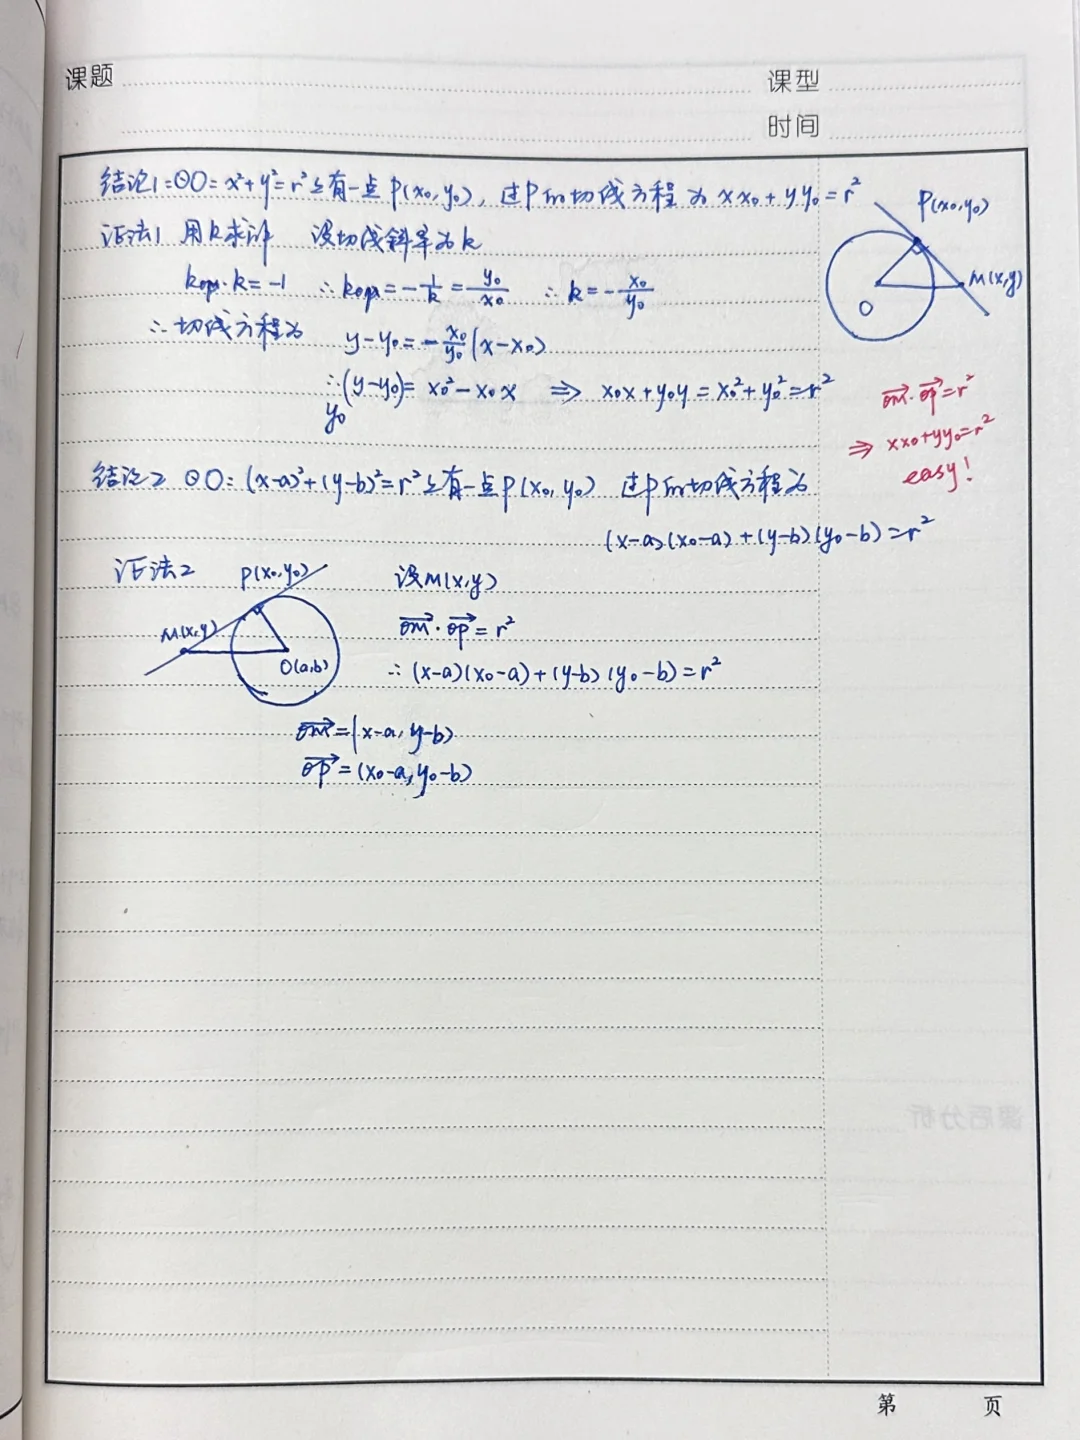 课题
课型
时间
结论1:⊙O:x²+y²=r²上有一点P(x₀,y₀),过P的切线方程为xx₀+yy₀=r²
证法1 用k求许 设切线斜率为k
k_{OP}·k=-1 ∴k_{OP}=-\frac{1}{k}=\frac{y₀}{x₀} ∴k=-\frac{x₀}{y₀}
∴切线方程为 y-y₀=-\frac{x₀}{y₀}(x-x₀)
∴(y-y₀)=x₀²-x₀x ⇒ x₀x+y₀y=x₀²+y₀²=r²
y₀
P(x₀,y₀)
M(x,y)
O
\overrightarrow{OM}·\overrightarrow{OP}=r²
⇒ xx₀+yy₀=r²
easy!
结论2 ⊙O:(x-a)²+(y-b)²=r²上有一点P(x₀,y₀) 过P的切线方程为
(x-a)(x₀-a)+(y-b)(y₀-b)=r²
证法2 P(x₀,y₀) 设M(x,y)
M(x,y)
O(a,b)
\overrightarrow{OM}·\overrightarrow{OP}=r²
∴(x-a)(x₀-a)+(y-b)(y₀-b)=r²
\overrightarrow{OM}=(x-a,y-b)
\overrightarrow{OP}=(x₀-a,y₀-b)
第 页